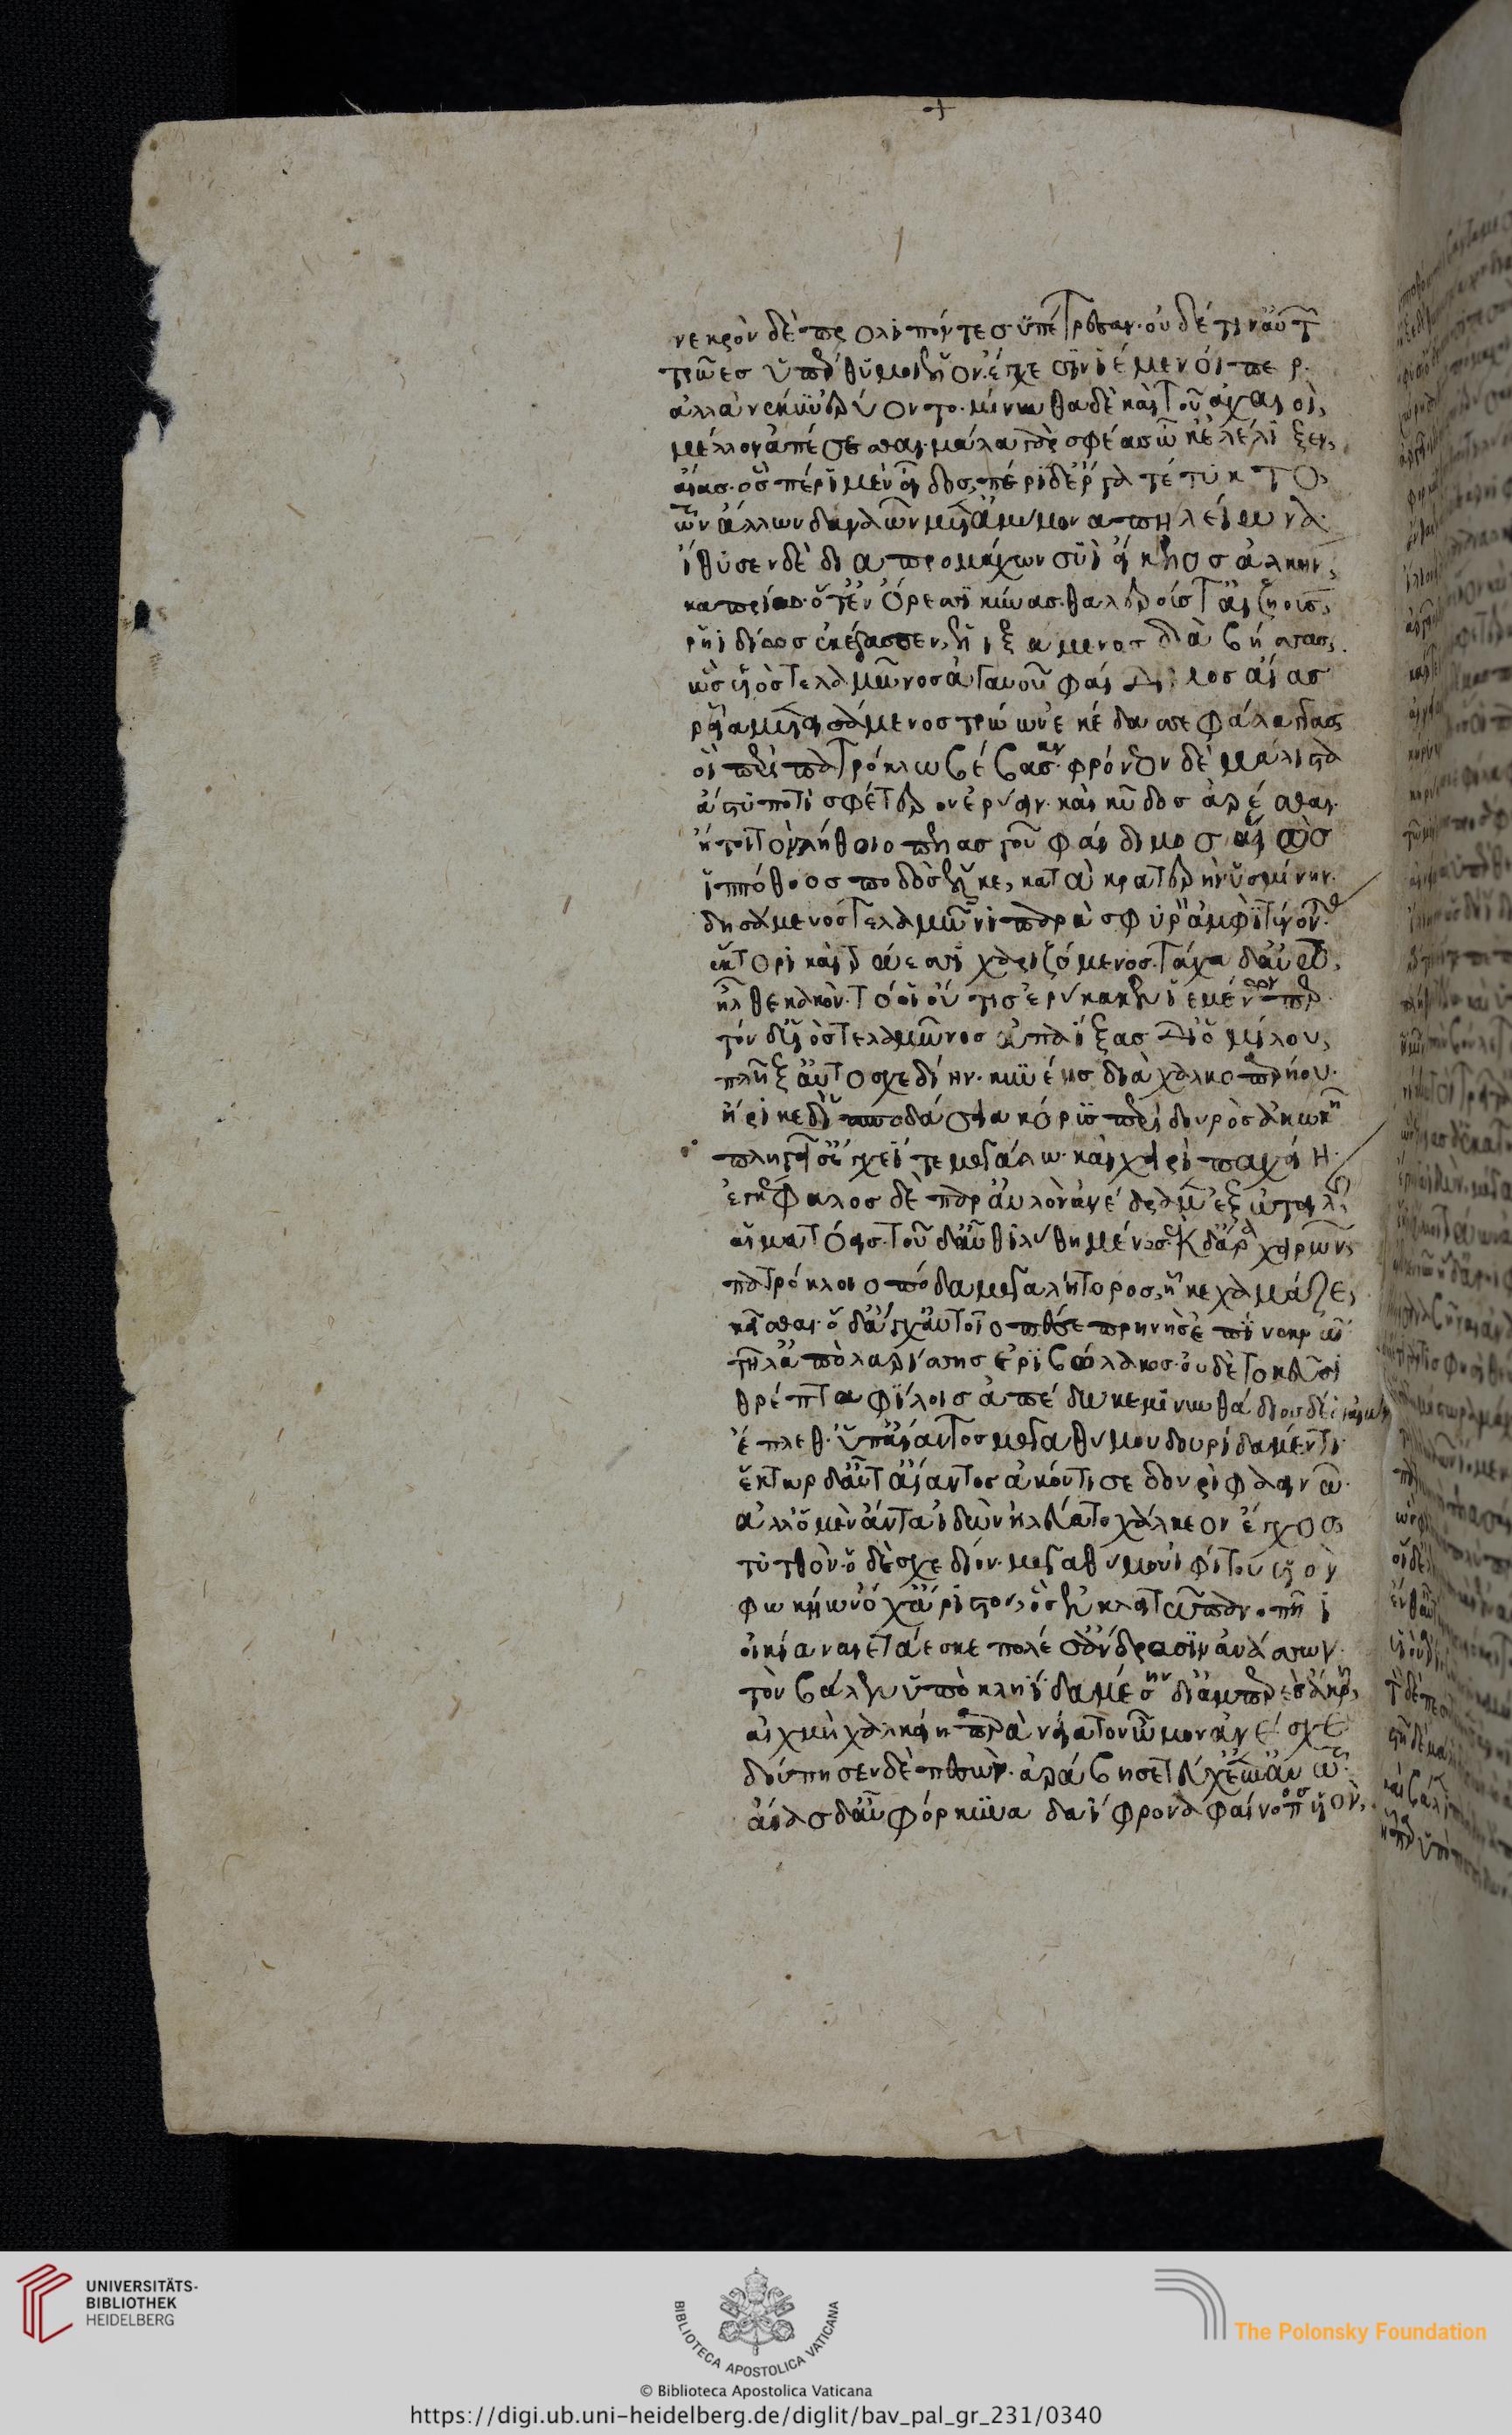 νεκρὸν δὲ προλιπόντες ὑπέτρεσαν· οὐδέ τιν αὐτῶν
τρῶες ὑπέρθυμοι ἕλον ἔγχεσιν ἱέμενοί περ·
ἀλλὰ νέκυν ἐρύοντο· μίνυνθα δὲ καὶ τοῦ ἀχαιοὶ,
μέλλον ἀπέσσεσθαι· μάλα γάρ σφέας ὦκ' ἐλέλιξεν,
αἴας· ὃς πέρι μὲν εἶδος, πέρι δ' ἔργα τέτυκτο,
τῶν ἄλλων δαναῶν μετ' ἀμύμονα πηλείωνα·
ἴθυσεν δὲ διὰ προμάχων συῒ εἴκελος ἀλκὴν,
καπρίω· ὅς τ' ἐν ὄρεσσι κύνας θαλερούς τ' αἰζηοὺς,
ῥηϊδίως ἐκέδασσεν, ἑλιξάμενος διὰ βήσσας,
ὣς υἱὸς τελαμῶνος ἀγαυοῦ φαίδιμος αἴας
ῥεῖα μετεισάμενος τρώων ἐκέδασσε φάλαγγας
οἳ περὶ πατρόκλω βέβασαν· φρόνεον δὲ μάλιστα
ἄστυ ποτὶ σφέτερον ἐρύειν· καὶ κῦδος ἀρέσθαι·
ἤτοι τὸν λήθοιο πελασγοῦ φαίδιμος υἱὸς
ἱππόθοος ποδὸς ἕλκε, κατὰ κρατερὴν ὑσμίνην·
δησάμενος τελαμῶνι παρὰ σφυρὸν ἀμφὶ τένοντας
ἕκτορι καὶ τρώεσσι χαριζόμενος· τάχα δ' αὐτῶ,
ἦλθε κακὸν· τό οἱ οὔ τις ἐρύκακεν ἱεμένων περ
τόν δ' υἱὸς τελαμῶνος ἐπαΐξας δι' ὁμίλου,
πλῆξ' αὐτοσχεδίην· κυνέης διὰ χαλκοπαρήου·
ἤρικε δ' ἱπποδάσεια κόρυς περὶ δουρὸς ἀκωκῆ
πληγεῖσ' ἔγχεΐ τε μεγάλω· καὶ χειρὶ παχείη·
ἐγκέφαλος δὲ παρ' αὐλὸν ἀνέδραμεν ἐξ ὠτειλῆς
αἱματόεις· τοῦ δ' αὖθι λύθη μένος· ἐκ δ' ἄρα χειρῶν,
πατρόκλοιο πόδα μεγαλήτορος, ἧκε χαμᾶζε,
κεῖσθαι· ὁ δ' ἄγχ' αὐτοῖο πέσε πρηνὴς ἐπὶ νεκρῶ
τῆλ' ἀπὸ λαρίσσης ἐριβώλακος· οὐδὲ τοκεῦσι
θρέπτα φίλοις ἀπέδωκε μίνυνθάδιος δέ οἱ αἰὼν
ἔπλεθ' ὑπ' αἴαντος μεγαθύμου δουρὶ δαμέντι·
ἕκτωρ δ' αὖτ' αἴαντος ἀκόντισε δουρὶ φαεινῶ·
ἀλλ' ὁ μὲν ἄντα ἰδὼν ἠλεύατο χάλκεον ἔγχος
τυτθὸν· ὁ δὲ σχεδίον· μεγαθύμου ἰφίτου υἱὸν
φωκήων ὄχ' ἄριστον, ὃς ἐν κλειτῶ πανοπῆϊ
οἰκία ναιετάεσκε πολέσσ' ἄνδρεσσιν ἀνάσσων·
τὸν βάλ' ὑπὸ κληΐδα μέσην διαμπερὲς ἄκρη,
αἰχμὴ χαλκείη παρὰ νείατον ὦμον ἀνέσχε
δούπησεν δὲ πεσὼν· ἀράβησε τεύχε' ἐπ' αὐτῶ·
αἴας δ' αὖ φόρκυνα δαΐφρονα φαίνοπος υἱὸν,
UNIVERSITÄTS-
BIBLIOTHEK
HEIDELBERG
BIBLIOTECA APOSTOLICA VATICANA
The Polonsky Foundation
© Biblioteca Apostolica Vaticana
https://digi.ub.uni-heidelberg.de/diglit/bav_pal_gr_231/0340